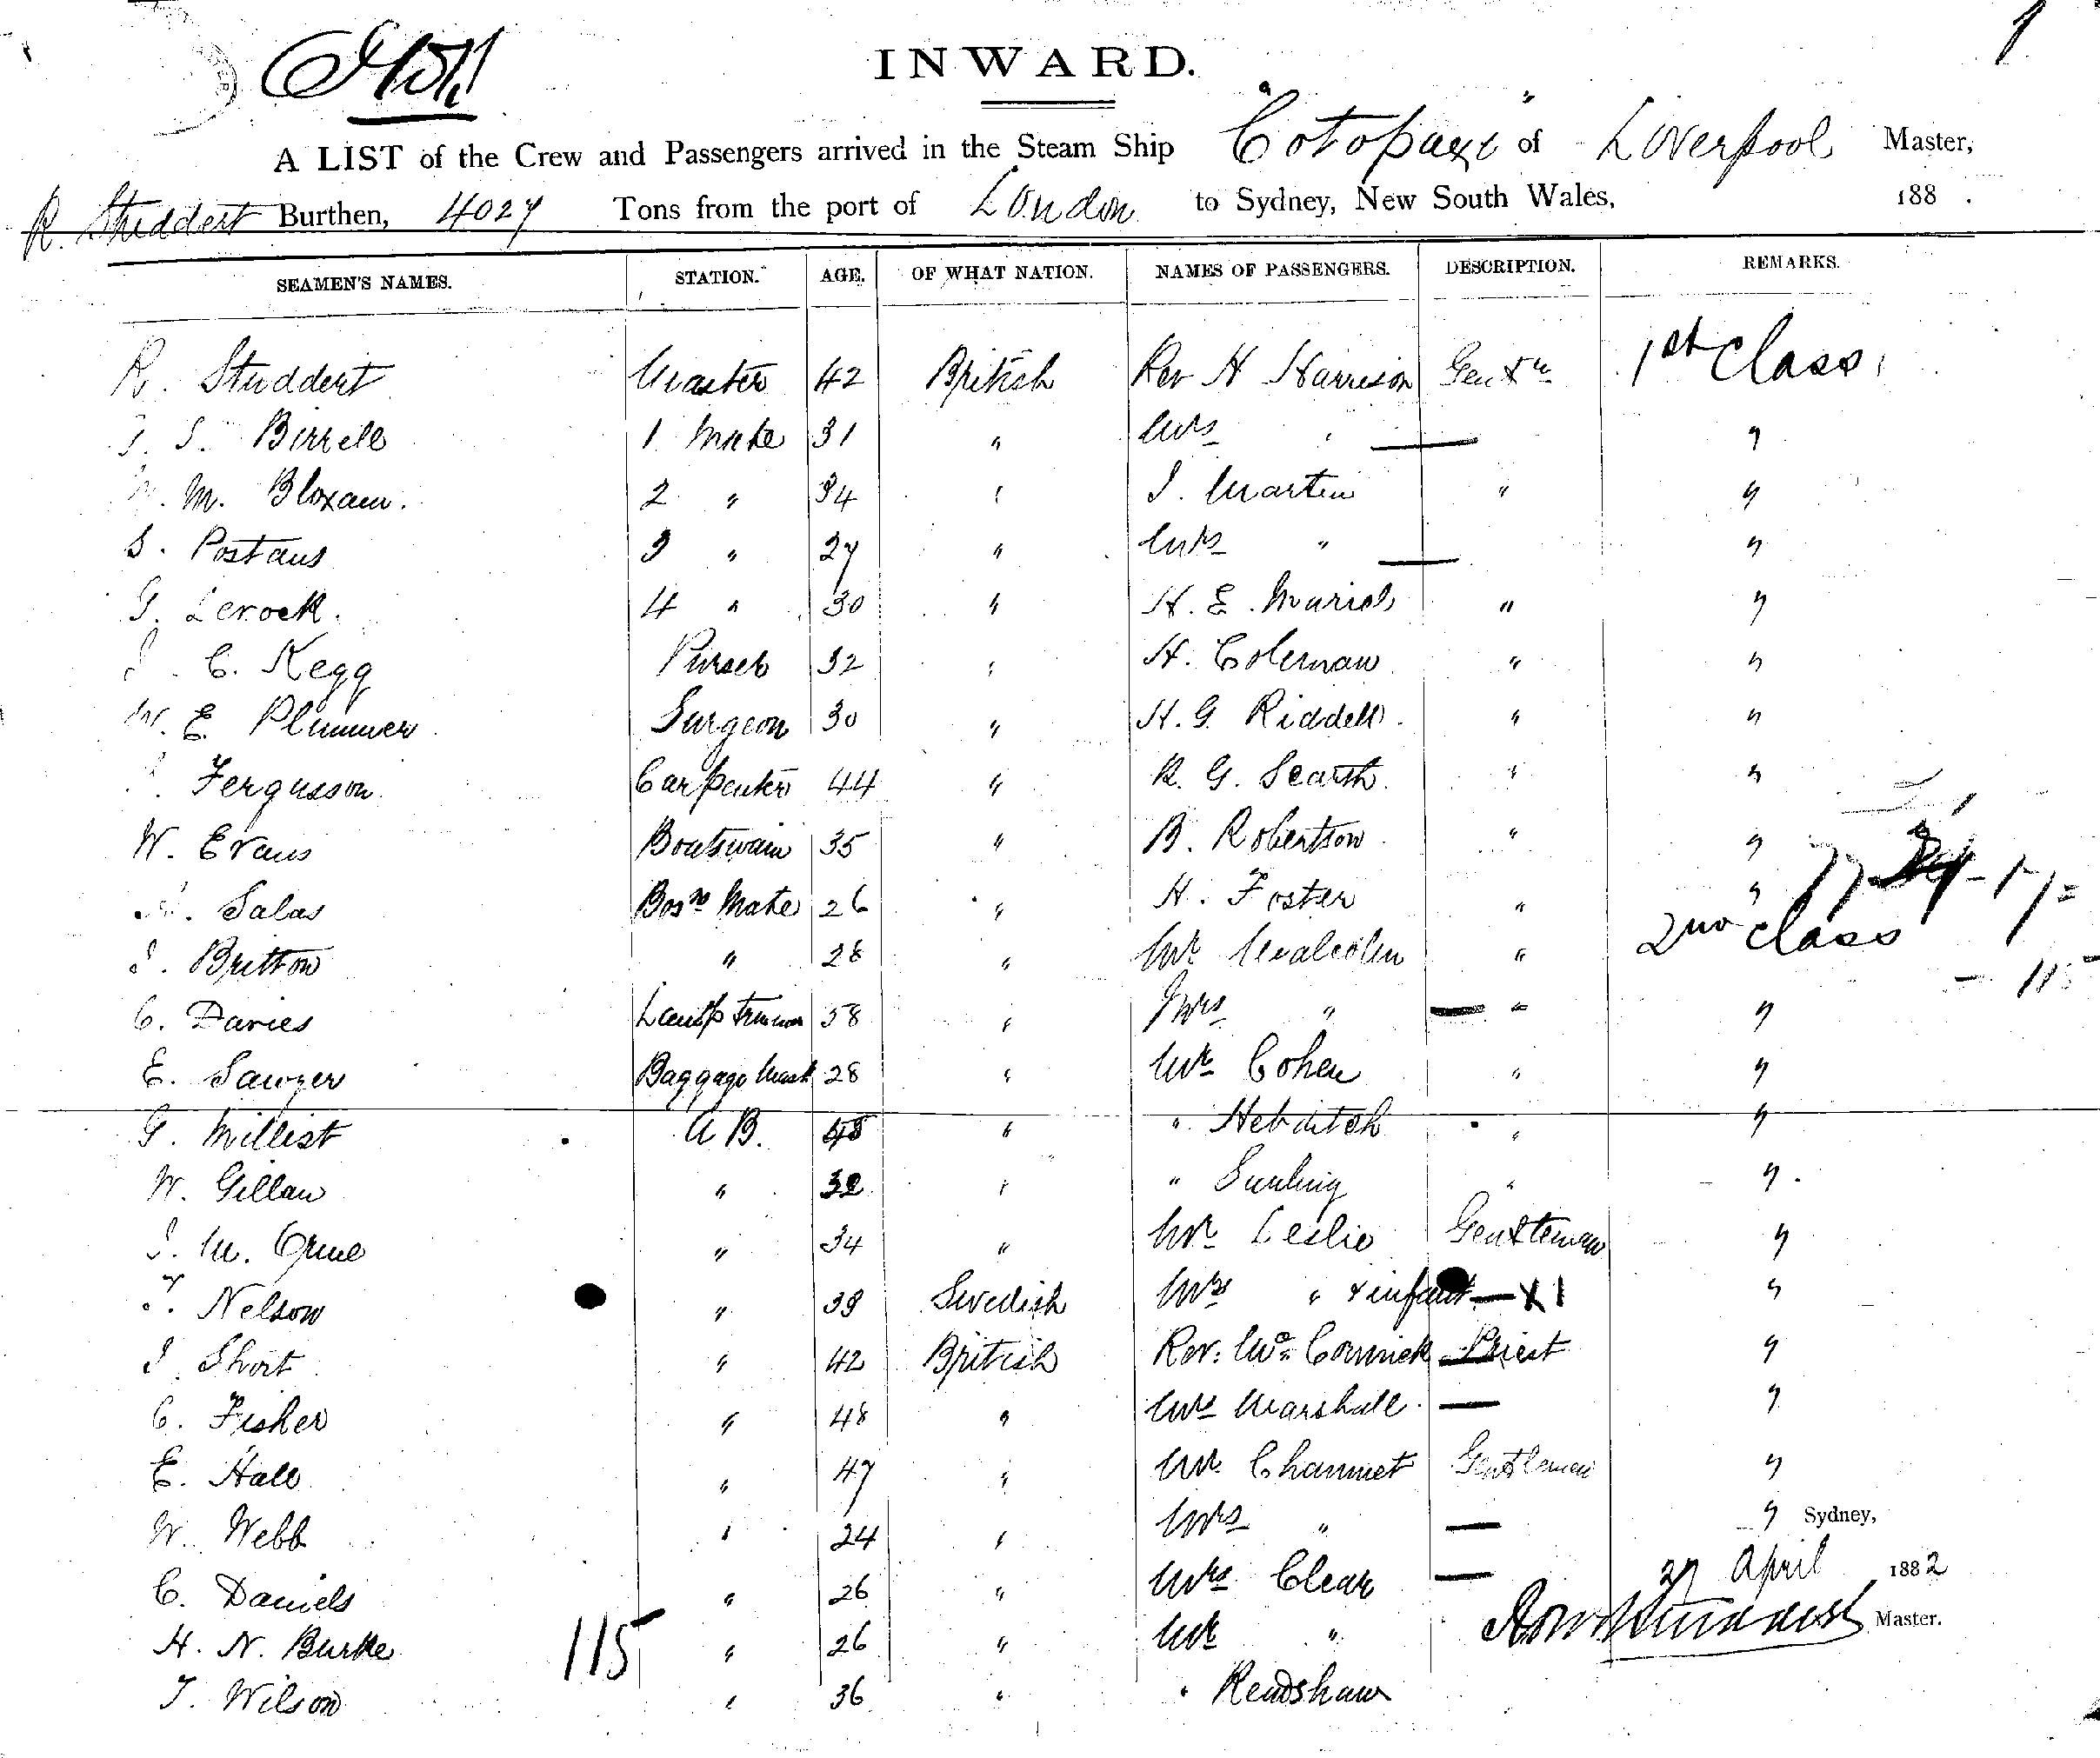 INWARD.
A LIST of the Crew and Passengers arrived in the Steam Ship Cotopaxi of Liverpool Master,
R. Studdert Burthen, 4027 Tons from the port of London to Sydney, New South Wales, 188 .
SEAMEN'S NAMES. STATION. AGE. OF WHAT NATION. NAMES OF PASSENGERS. DESCRIPTION. REMARKS.
R. Studdert Master 42 British Rev H Harrison Gentn 1st Class
J. S. Birrell 1 Mate 31 " Mrs " — "
M. Bloxam. 2 " 34 " J. Martin " "
S. Postans 3 " 27 " Mrs " — "
G. Lerock. 4 " 30 " H. E. " "
J. C. Kegg Purser 32 " H. Coleman " "
W. E. Plummer Surgeon 30 " H. G. Riddell " "
Fergusson Carpenter 44 " R. G. Scarth. " "
W. Evans Boatswain 35 " B. Robertson " "
Salas Bosns Mate 26 " H. Foster " "
J. Britton " 28 " Mr Malcolm " 2nd Class
C. Davies Lamp Trimmer 38 " Mrs " — " "
E. Sawyer Baggage Mast 28 " Mr Cohen " "
G. Millist A B. 48 " " Hebditch " "
W. Gillan " 32 " " " "
J. M. Orme " 34 " Mr Leslie Gentleman "
T. Nelson " 38 Swedish Mrs " & infant — X 1 "
J. Short " 42 British Rev: Mc Cormick Priest "
C. Fisher " 48 " Mrs Marshall. — "
E. Hall " 47 " Mr Channet Gentleman "
W. Webb " 24 " Mrs " — " Sydney,
C. Daniels " 26 " Mrs Clear — 27 April 1882
H. N. Burke 115 " 26 " Mr " Master.
T. Wilson " 36 " " Renshaw